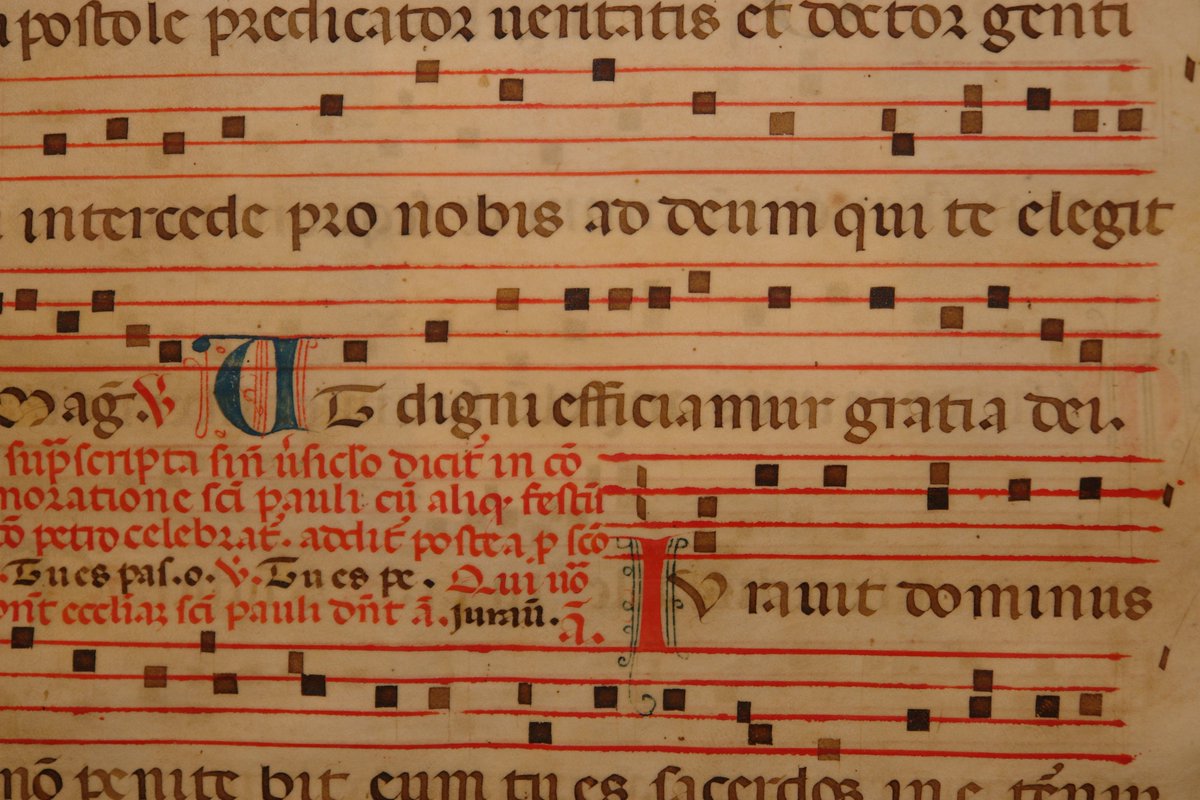 apostole predicator ueritatis et doctor genti
intercede pro nobis ad deum qui te elegit
Mag̃. V̓ UT digni efficiamur gratia dei.
sup̃scripta sin̄ ũsiclo dicit̃ in cō
moratione sc̄i pauli cū aliq̇ festū
petro celebrat̃. addit̃ postea p sc̄o
. Tu es pas. o. V̓. Tu es pe. Qui uō
eccl̄iaꝝ sc̄i pauli dn̄t ā. Jurauit̃. ā.
IU rauit dominus
nō penite bit eum tu es sacerdos in e. t̃num